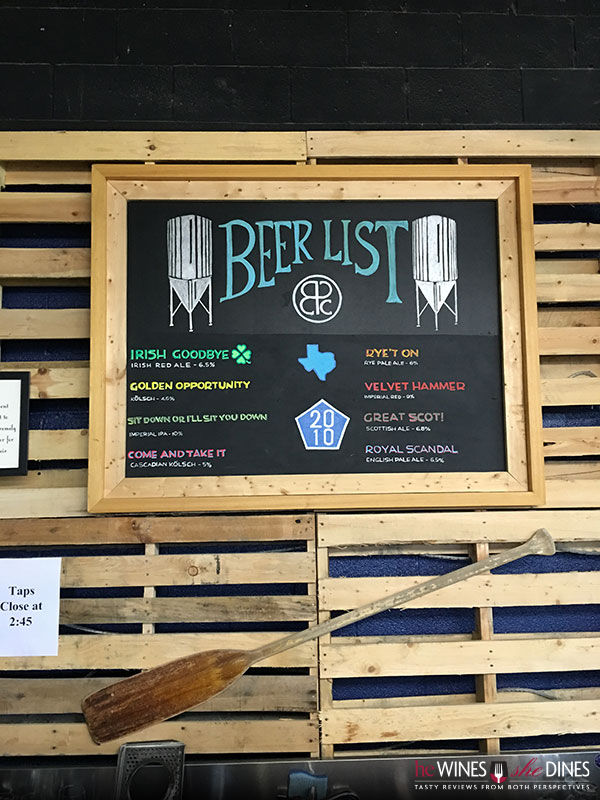 BEER LIST
IRISH GOODBYE
IRISH RED ALE - 6.5%
GOLDEN OPPORTUNITY
KÖLSCH - 4.6%
SIT DOWN OR I'LL SIT YOU DOWN
IMPERIAL IPA - 10%
COME AND TAKE IT
CASCADIAN KÖLSCH - 5%
20
10
RYE'T ON
RYE PALE ALE - 6%
VELVET HAMMER
IMPERIAL RED - 9%
GREAT SCOT!
SCOTTISH ALE - 6.8%
ROYAL SCANDAL
ENGLISH PALE ALE - 6.5%
Taps
Close at
2:45
heWINES sheDINES
TASTY REVIEWS FROM BOTH PERSPECTIVES